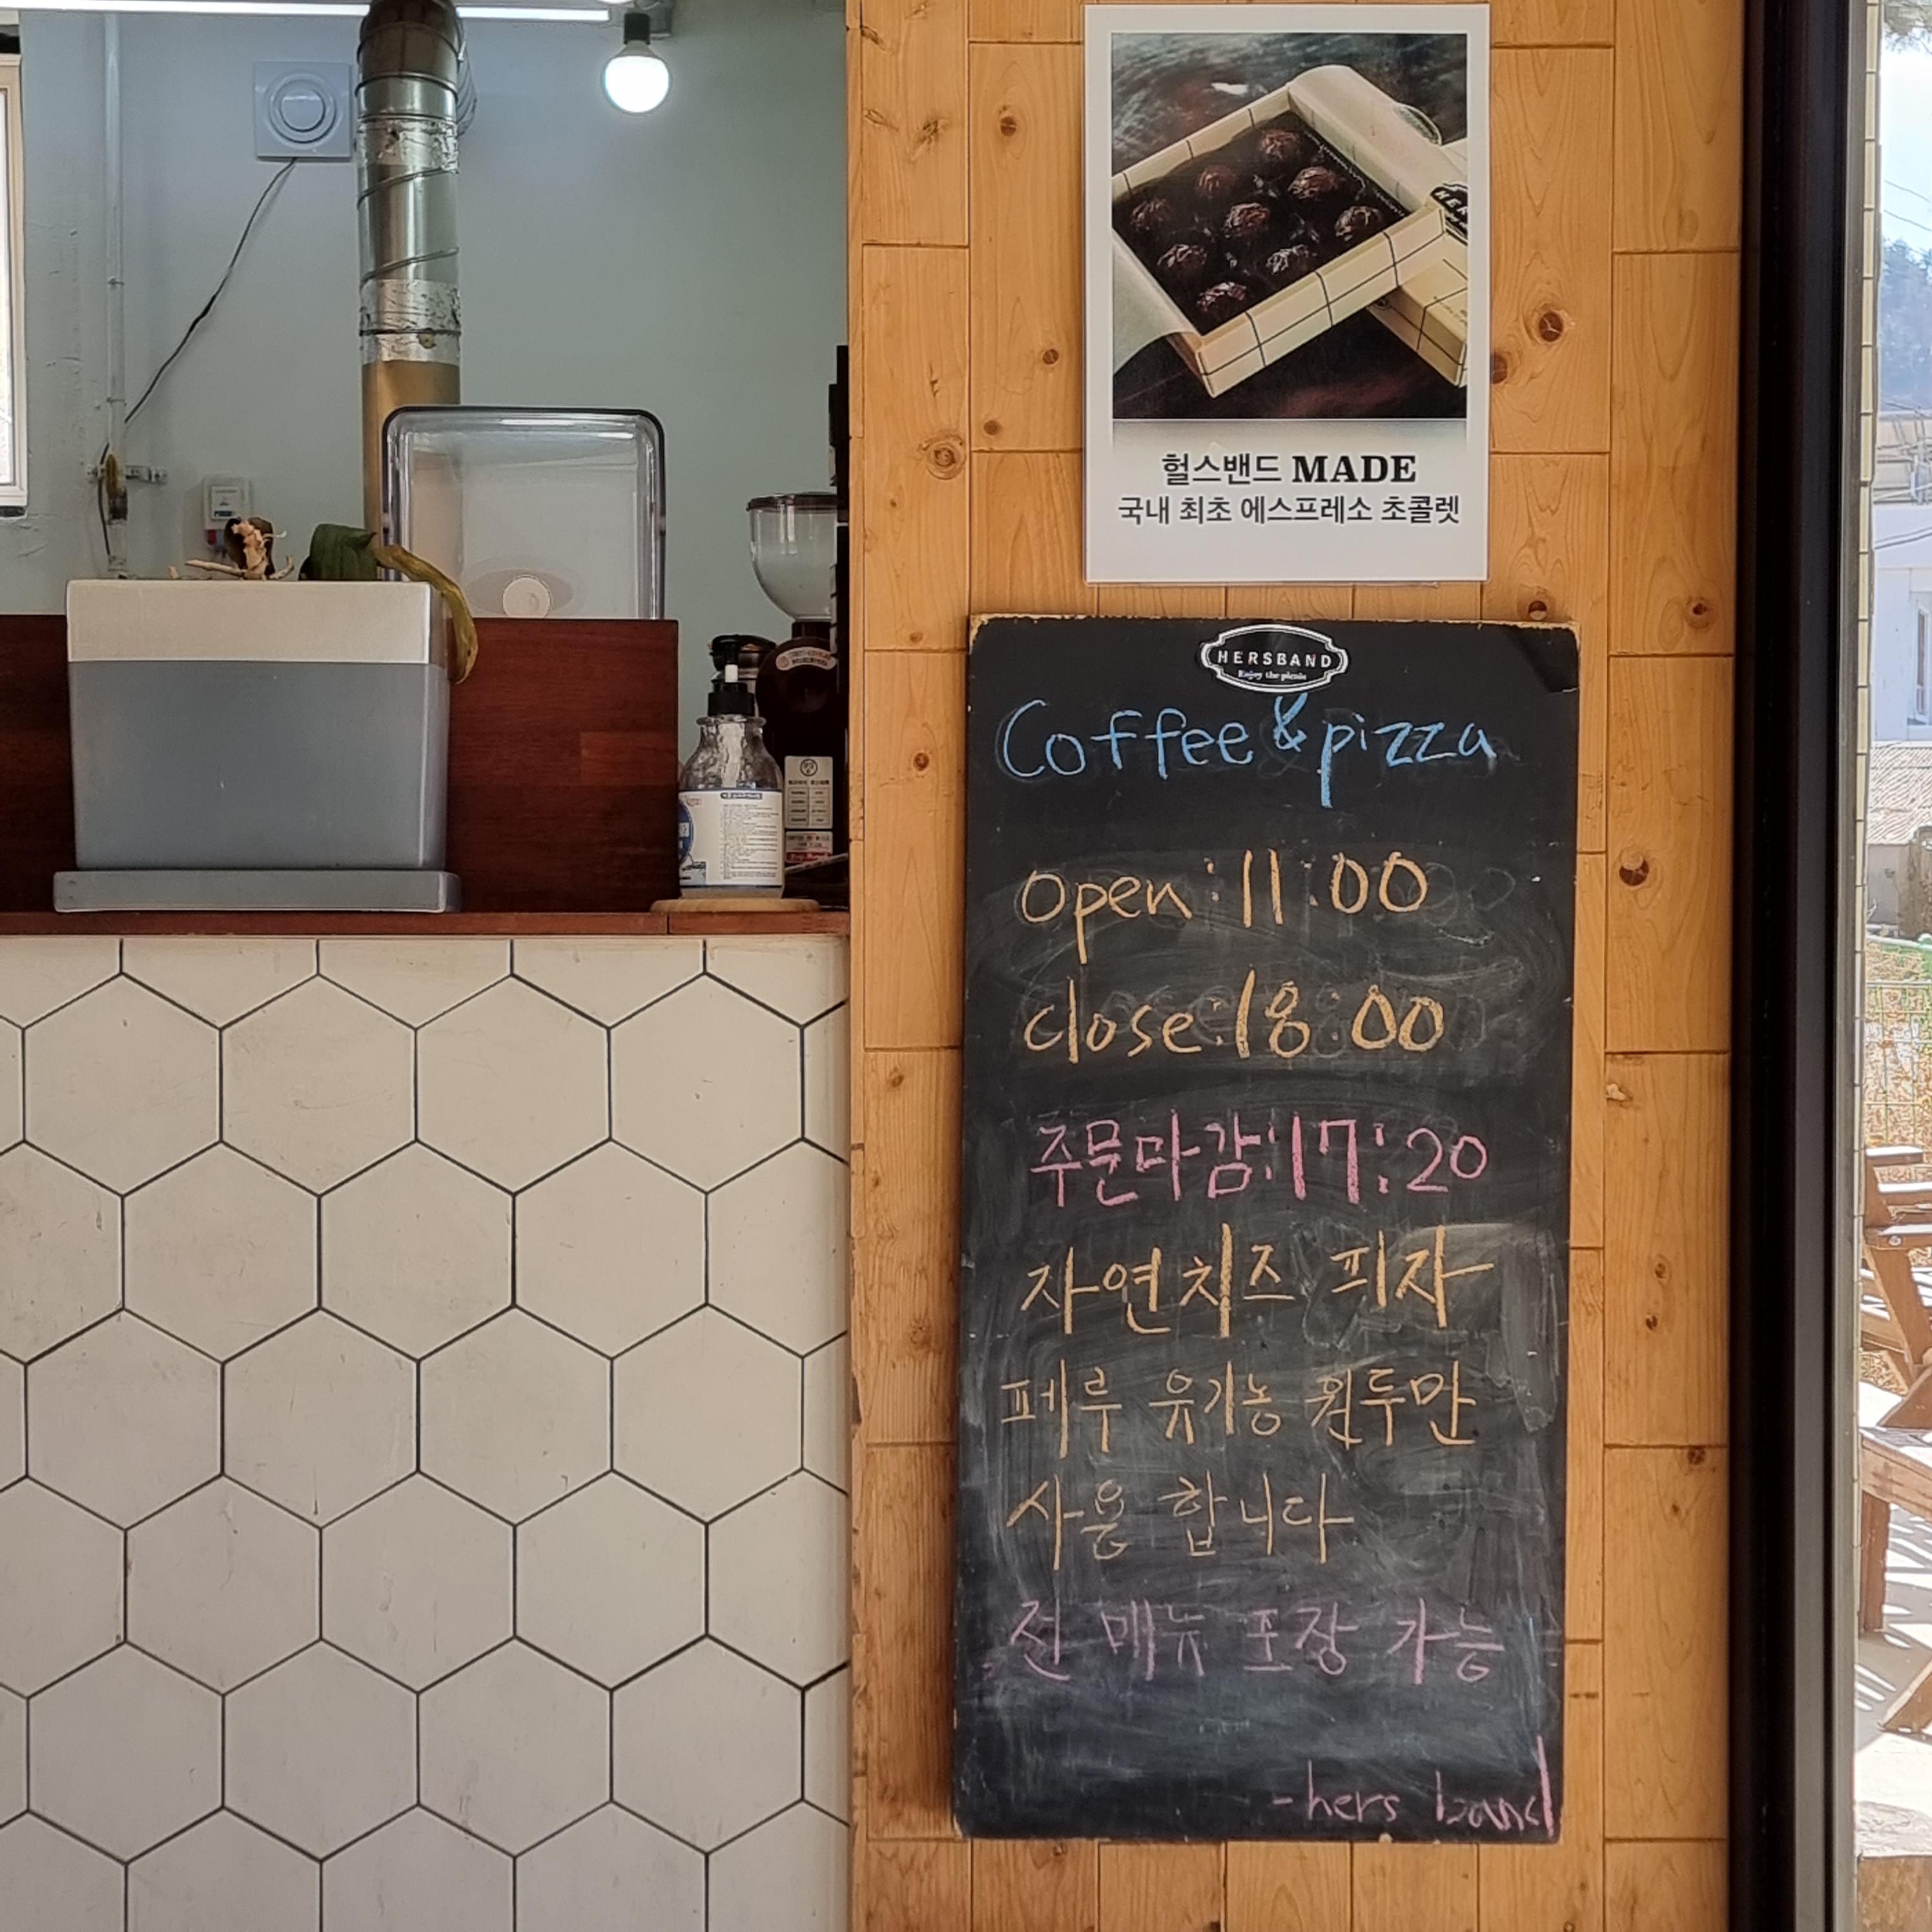 헐스밴드 MADE
국내 최초 에스프레소 초콜렛
HERSBAND
Enjoy the picnic
Coffee & pizza
Open:11:00
close:18:00
주문마감:17:20
자연치즈 피자
페루 유기농 원두만
사용 합니다
전 메뉴 포장 가능
-hers band